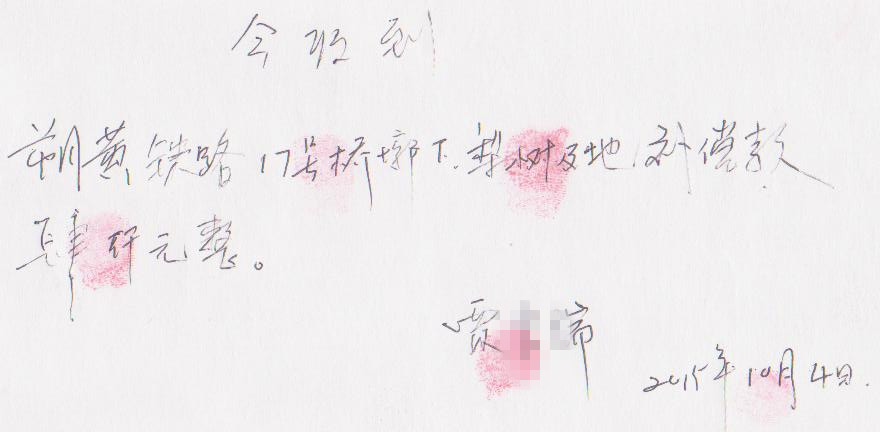 今收到
朔黄铁路17号桥墩下.梨树及地补偿款
肆仟元整。
贾 帝
2015年10月4日.